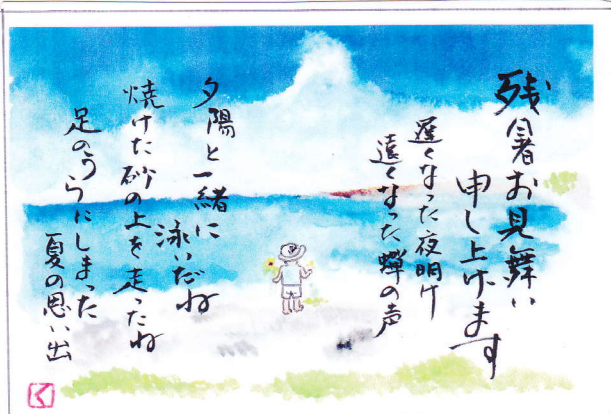 残暑お見舞い
申し上げます
遅くなった夜明け
遠くなった蝉の声
夕陽と一緒に
泳いだね
焼けた砂の上を走ったね
足のうらにしまった
夏の思い出
く